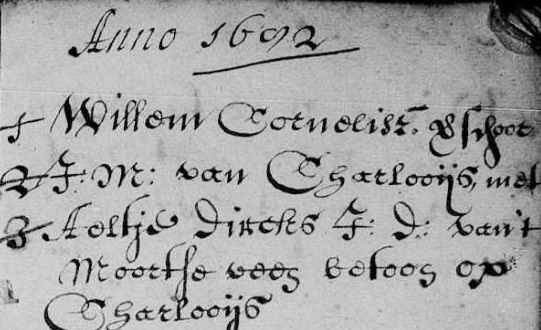 Anno 1692
1 Willem Cornelisz. Schoot
2 J: M: van Charlooijs, met
3 Aeltje Dircks J: D: van't
Moortse veer betoog op
Charlooijs